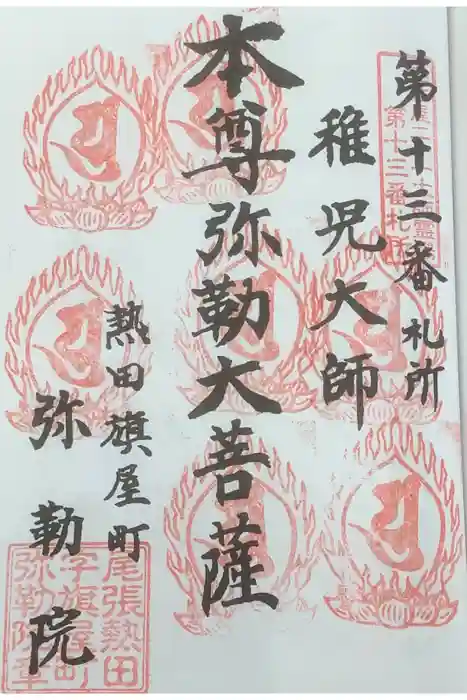 第十三番札所
第十三番札所
稚児大師
本尊弥勒大菩薩
熱田旗屋町
弥勒院
尾張熱田
字旗屋町
弥勒院章